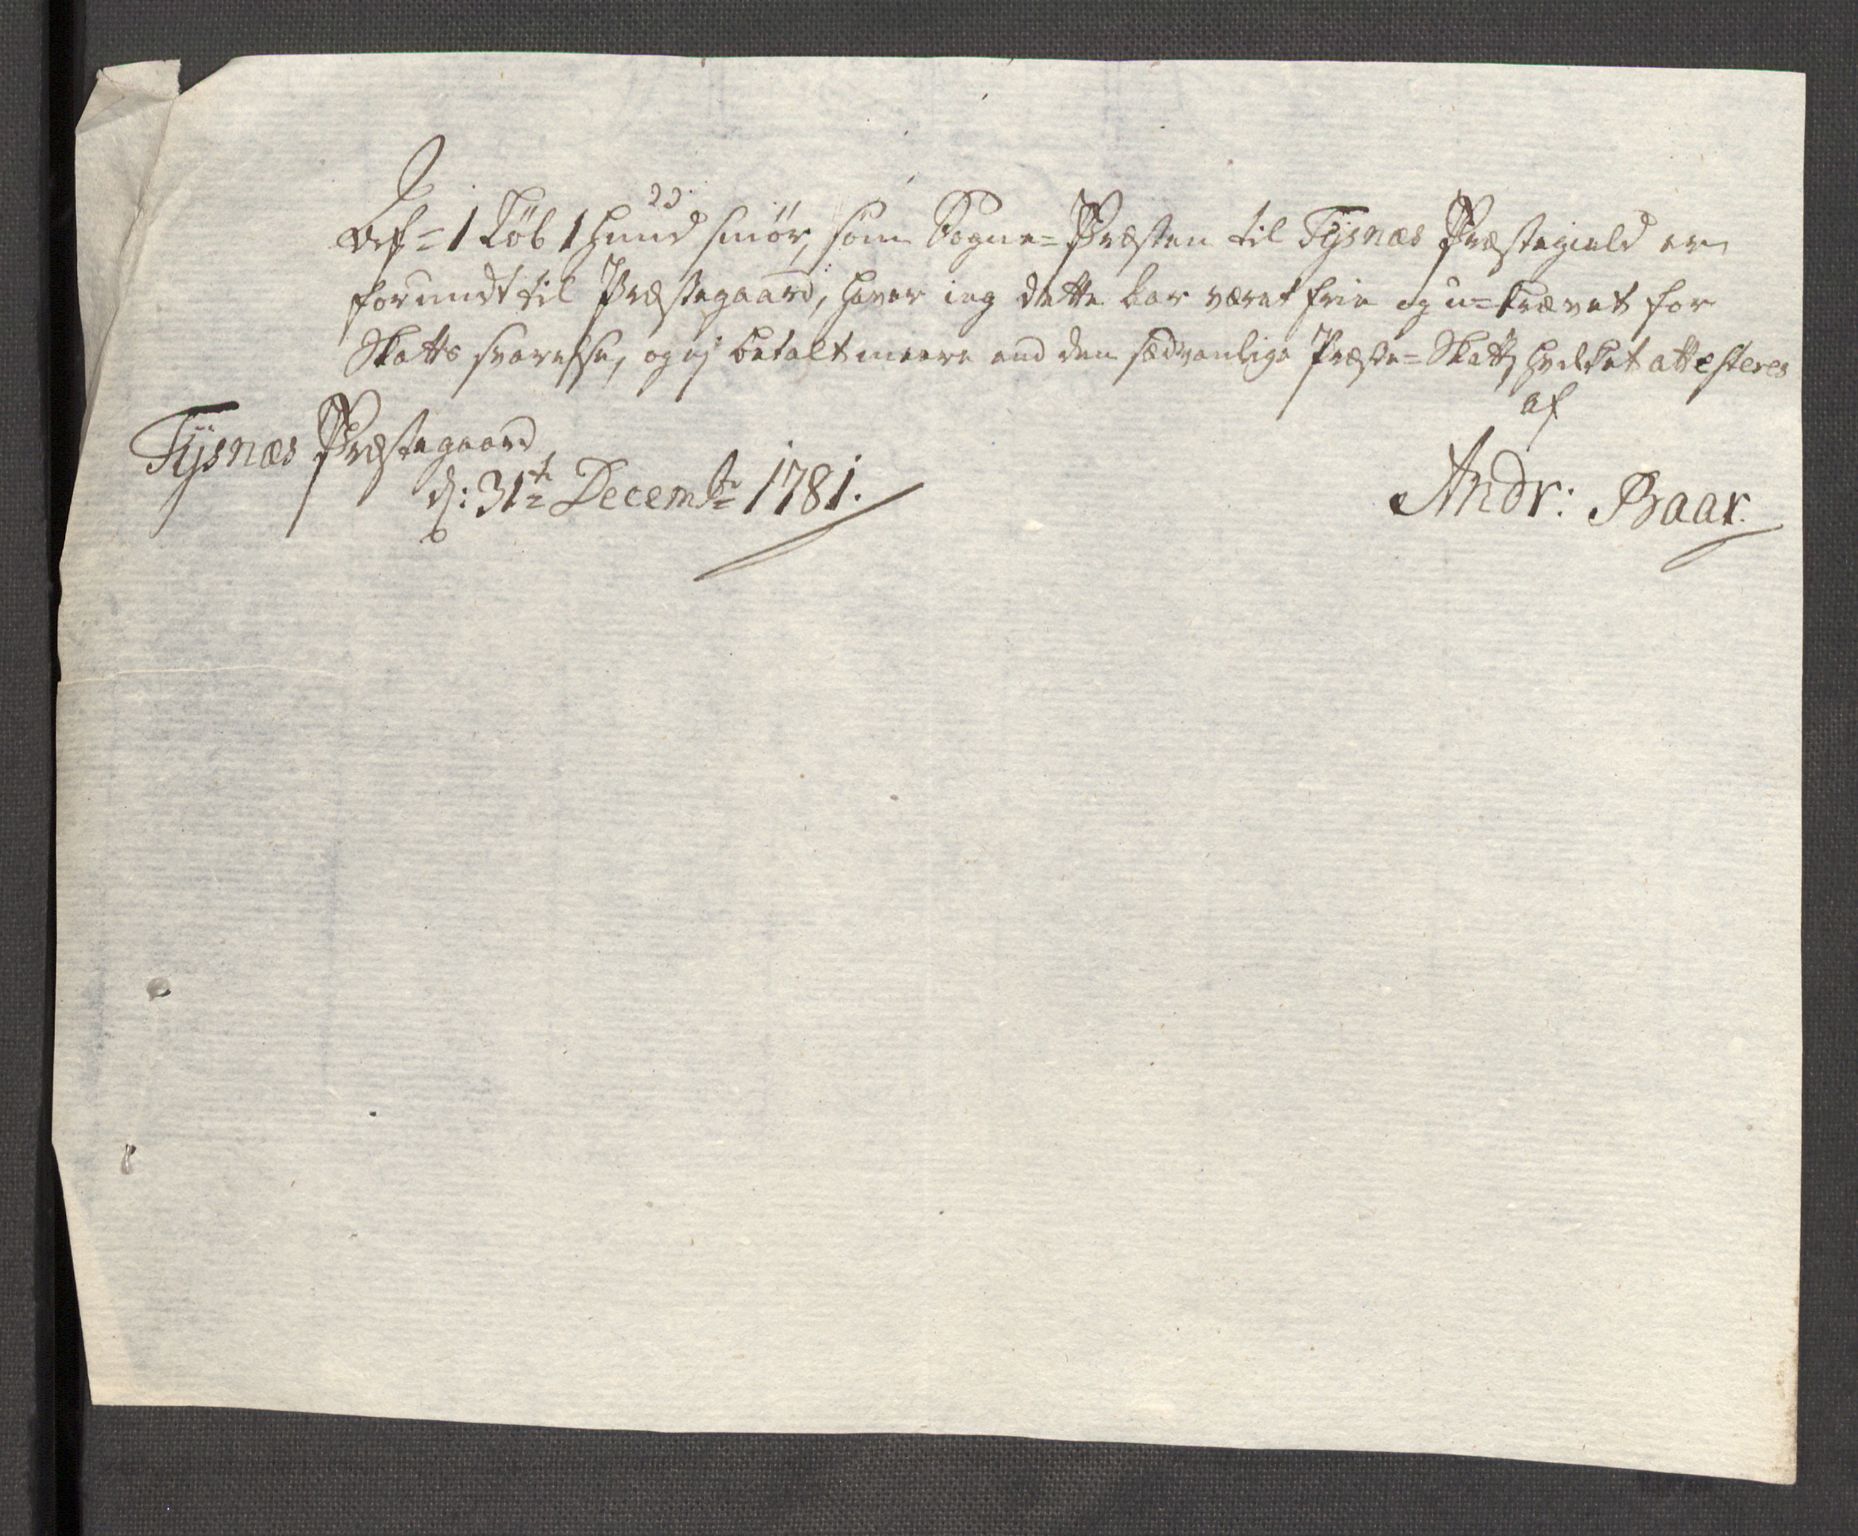 Af = 1 Løb 1 Huud smør, som Sogne=Præsten til Tÿsnæs Præstegield er
forundt til Præstegaard, haver ieg dette Aar været frie og u=krævet for
Skatts svarelse, og ej betalt meere end den sædvanlige Præste=Skatt, hvilket attesteres
af
Tÿsnæs Præstegaard
d: 31te Decembr 1781.
Andr: Baar.